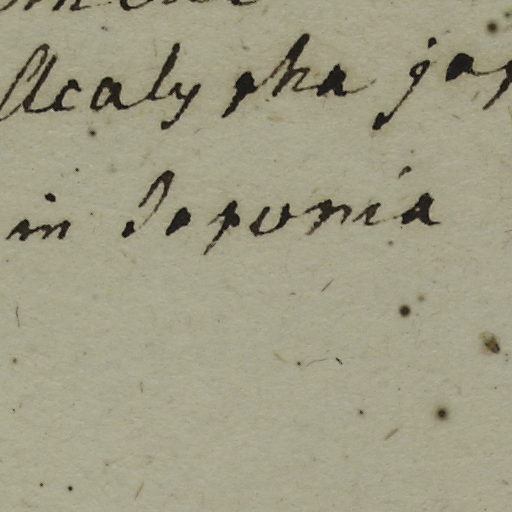 Acalypha jap
in Japonia